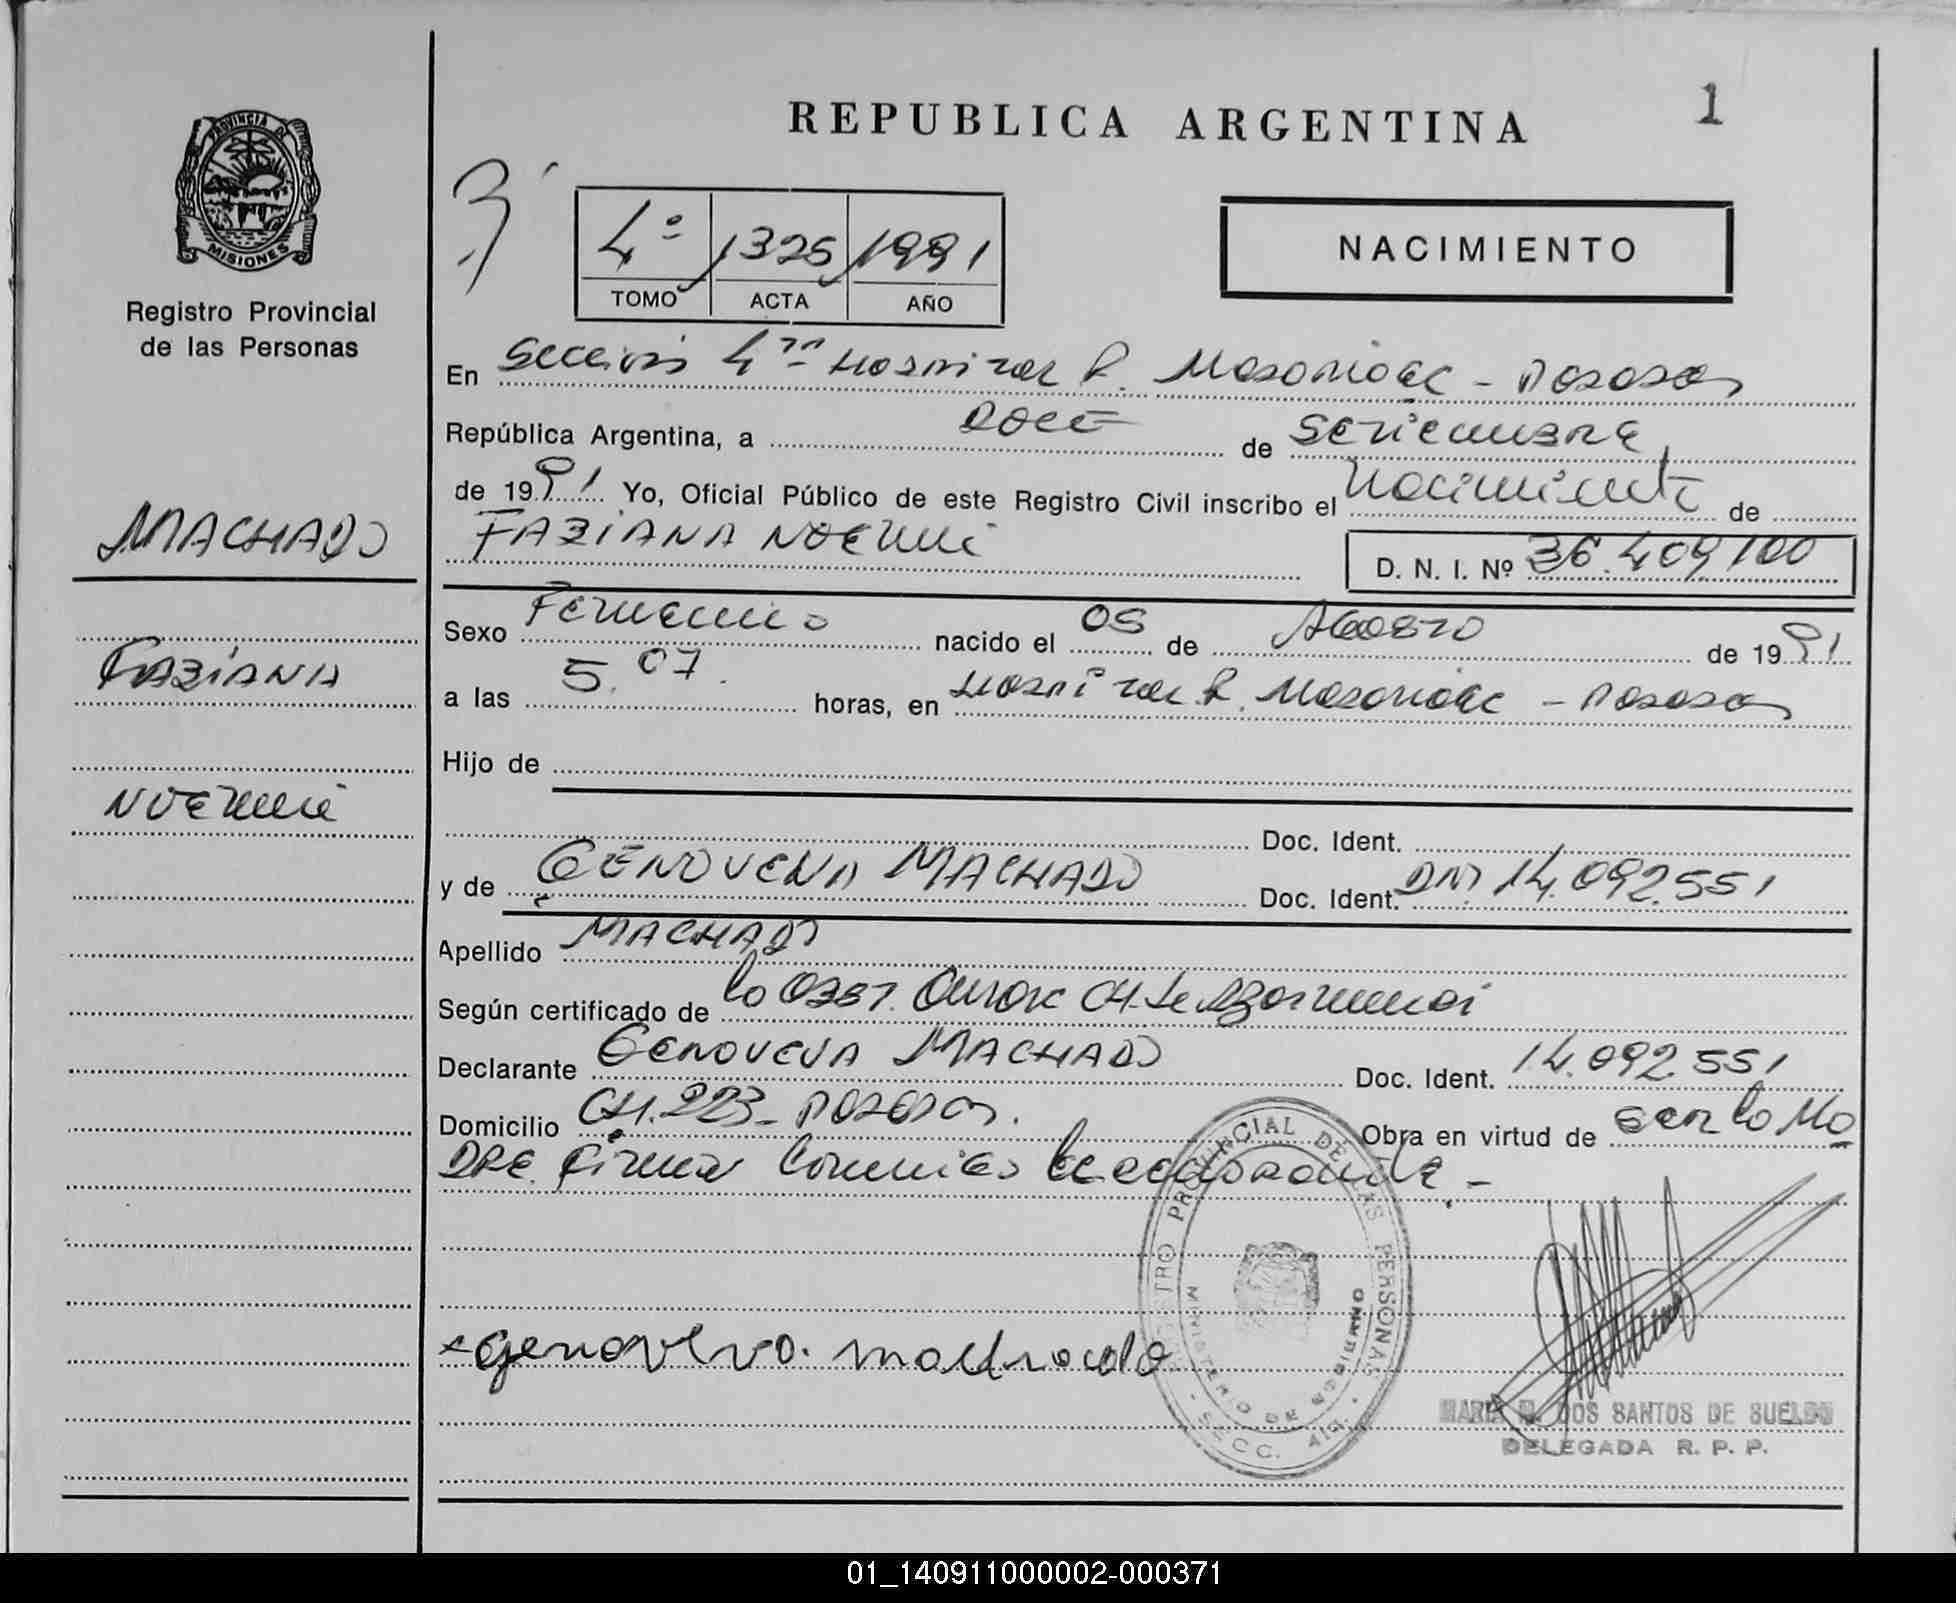 REPUBLICA ARGENTINA
1
PROVINCIA DE
MISIONES
Registro Provincial
de las Personas
4º 1325 1991
TOMO ACTA AÑO
NACIMIENTO
En Sección 4ta Hospital R. Madariaga - Posadas
República Argentina, a DOCE de SETIEMBRE
de 1991 Yo, Oficial Público de este Registro Civil inscribo el Nacimiento de
FABIANA NOEMI
D. N. I. Nº 36.409.100
MACHADO
FABIANA
NOEMI
Sexo Femenino nacido el 05 de Agosto de 1991
a las 5.07 horas, en Hospital R. Madariaga - Posadas
Hijo de
Doc. Ident.
y de GENOVEVA MACHADO Doc. Ident. DNI 14.092.551
Apellido MACHADO
Según certificado de la Obst.
Declarante GENOVEVA MACHADO Doc. Ident. 14.092.551
Domicilio CH. 223 - Posadas. Obra en virtud de ser la MA
DRE. Firma Conmigo la declarante. -
Genoveva. machado
REGISTRO PROVINCIAL DE LAS PERSONAS
MINISTERIO DE GOBIERNO
SECC. 4ta.
MARIA DOS SANTOS DE SUELDO
DELEGADA R. P. P.
01_140911000002-000371